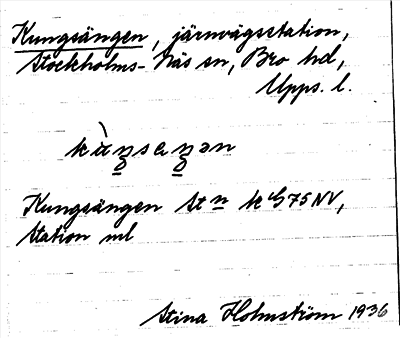 Kungsängen, järnvägsstation,
Stockholms-Näs sn, Bro hd,
Upps. l.
Kungsängen St n k G75NV,
Station ml
Stina Holmström 1936